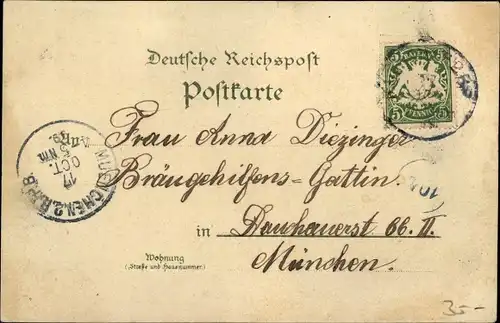 Deutsche Reichspost
Postkarte
BAYERN
5 5
5 PFENNIG 5
Frau Anna Diezinger
Bräugehilfens-Gattin.
in Dachauerst 66. II.
Wohnung
(Straße und Hausnummer)
München.
MUENCHEN.2.B.P.B
17
OCT.
5 Nm
99.
35-